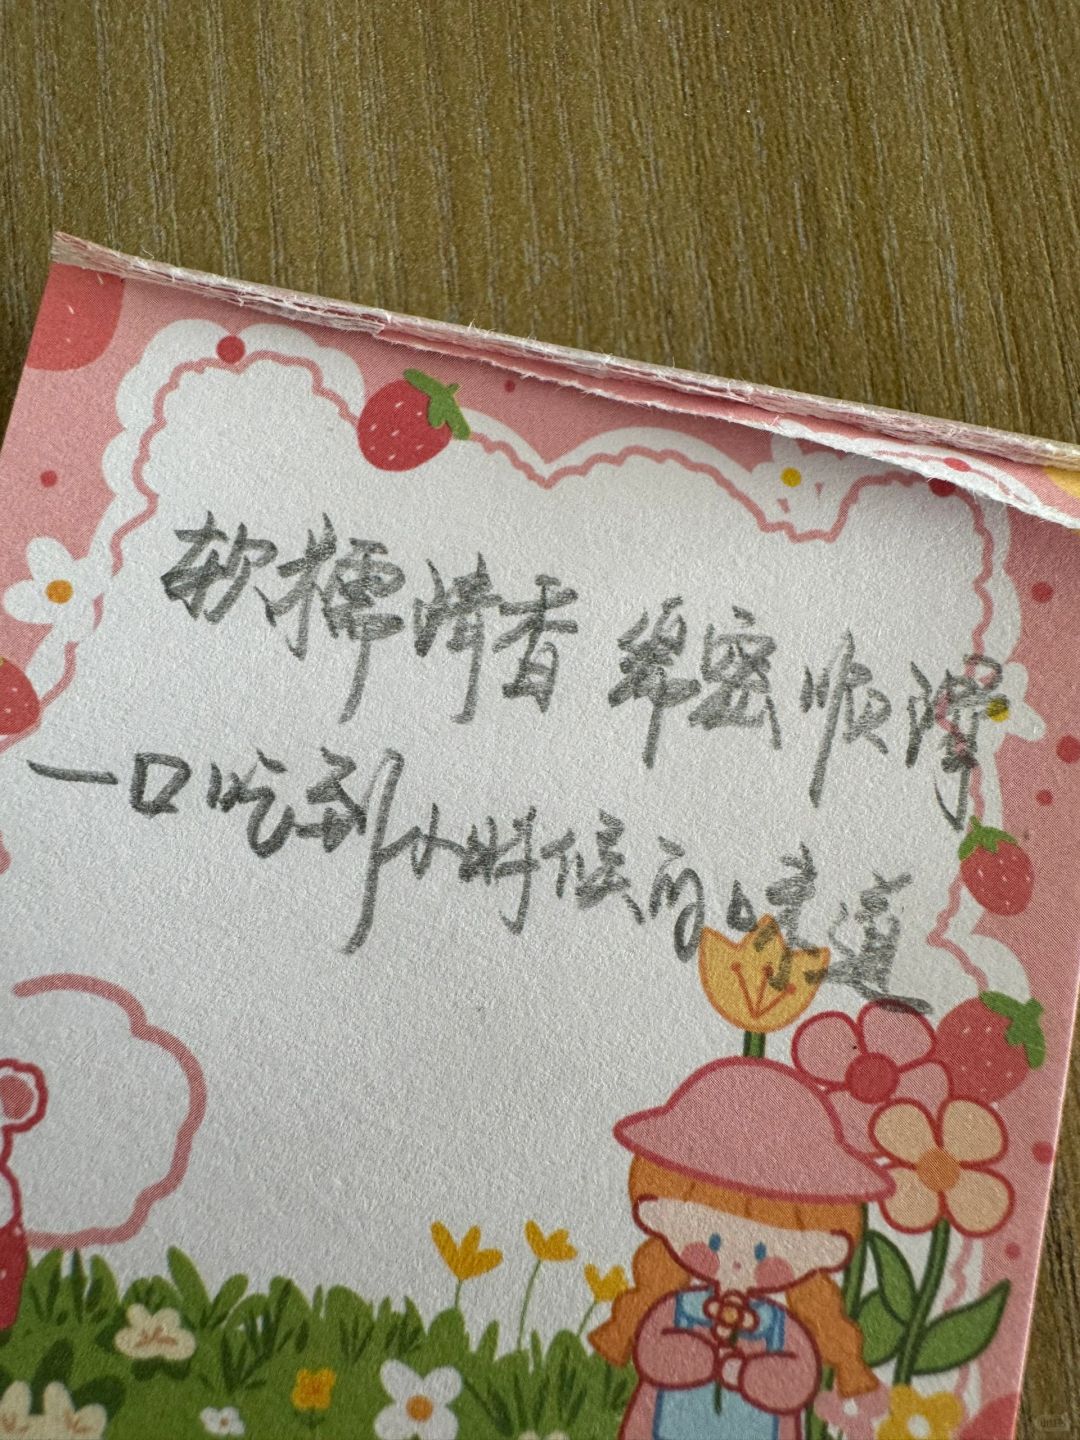 软糯清香 绵密顺滑
一口吃到小时候的味道